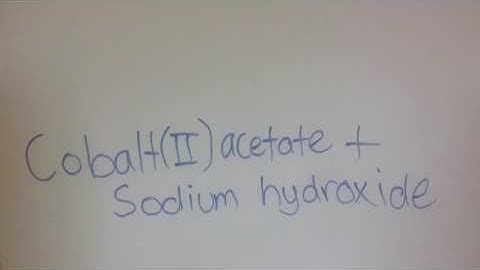 Cobalt(II) acetate +
Sodium hydroxide